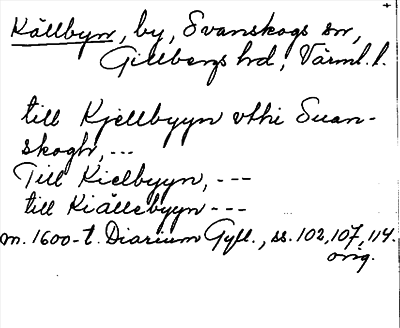 Källbyn, by, Svanskogs sn,
Gillbergs hd, Värml. l.
till Kjellbyyn vthi Suan-
skogh, ---
Till Kielbyyn, ---
till Kiällebyyn ---
m. 1600-t. Diarium Gyll., ss. 102, 107, 114.
orig.